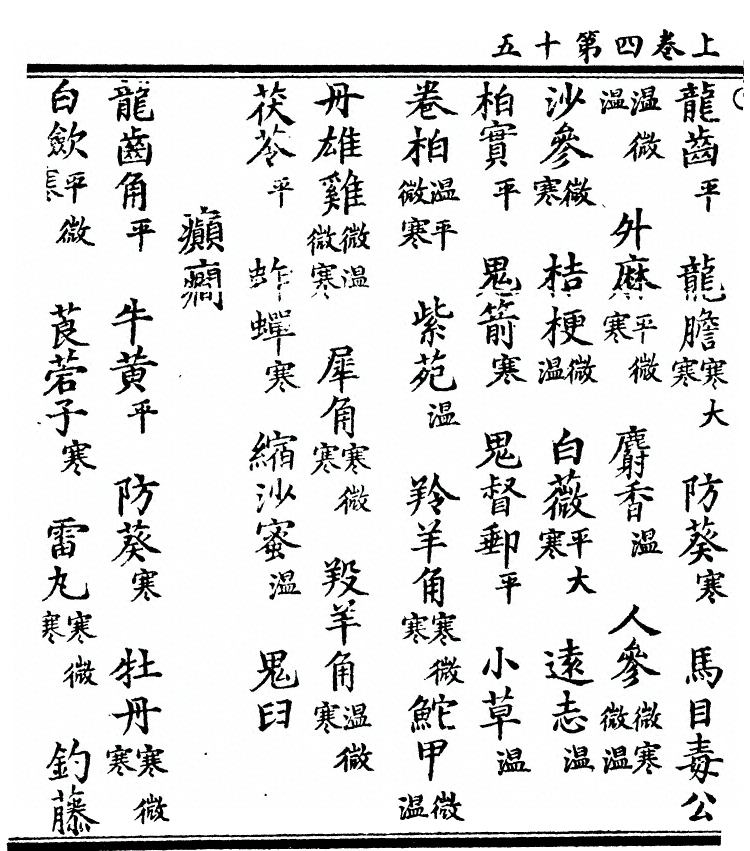 上卷四第十五
龍齒平 龍膽寒大寒 防葵寒 馬目毒公
温微温 升麻平微寒 麝香温 人參微寒微温
沙參微寒 桔梗微温 白薇平大寒 遠志温
柏實平 鬼箭寒 鬼督郵平 小草温
卷柏温平微寒 紫苑温 羚羊角寒微寒 鮀甲微温
丹雄雞微温微寒 犀角寒微寒 羖羊角温微寒
茯苓平 蚱蟬寒 縮沙蜜温 鬼臼
癲癇
龍齒角平 牛黄平 防葵寒 牡丹寒微寒
白歛平微寒 莨菪子寒 雷丸寒微寒 釣藤